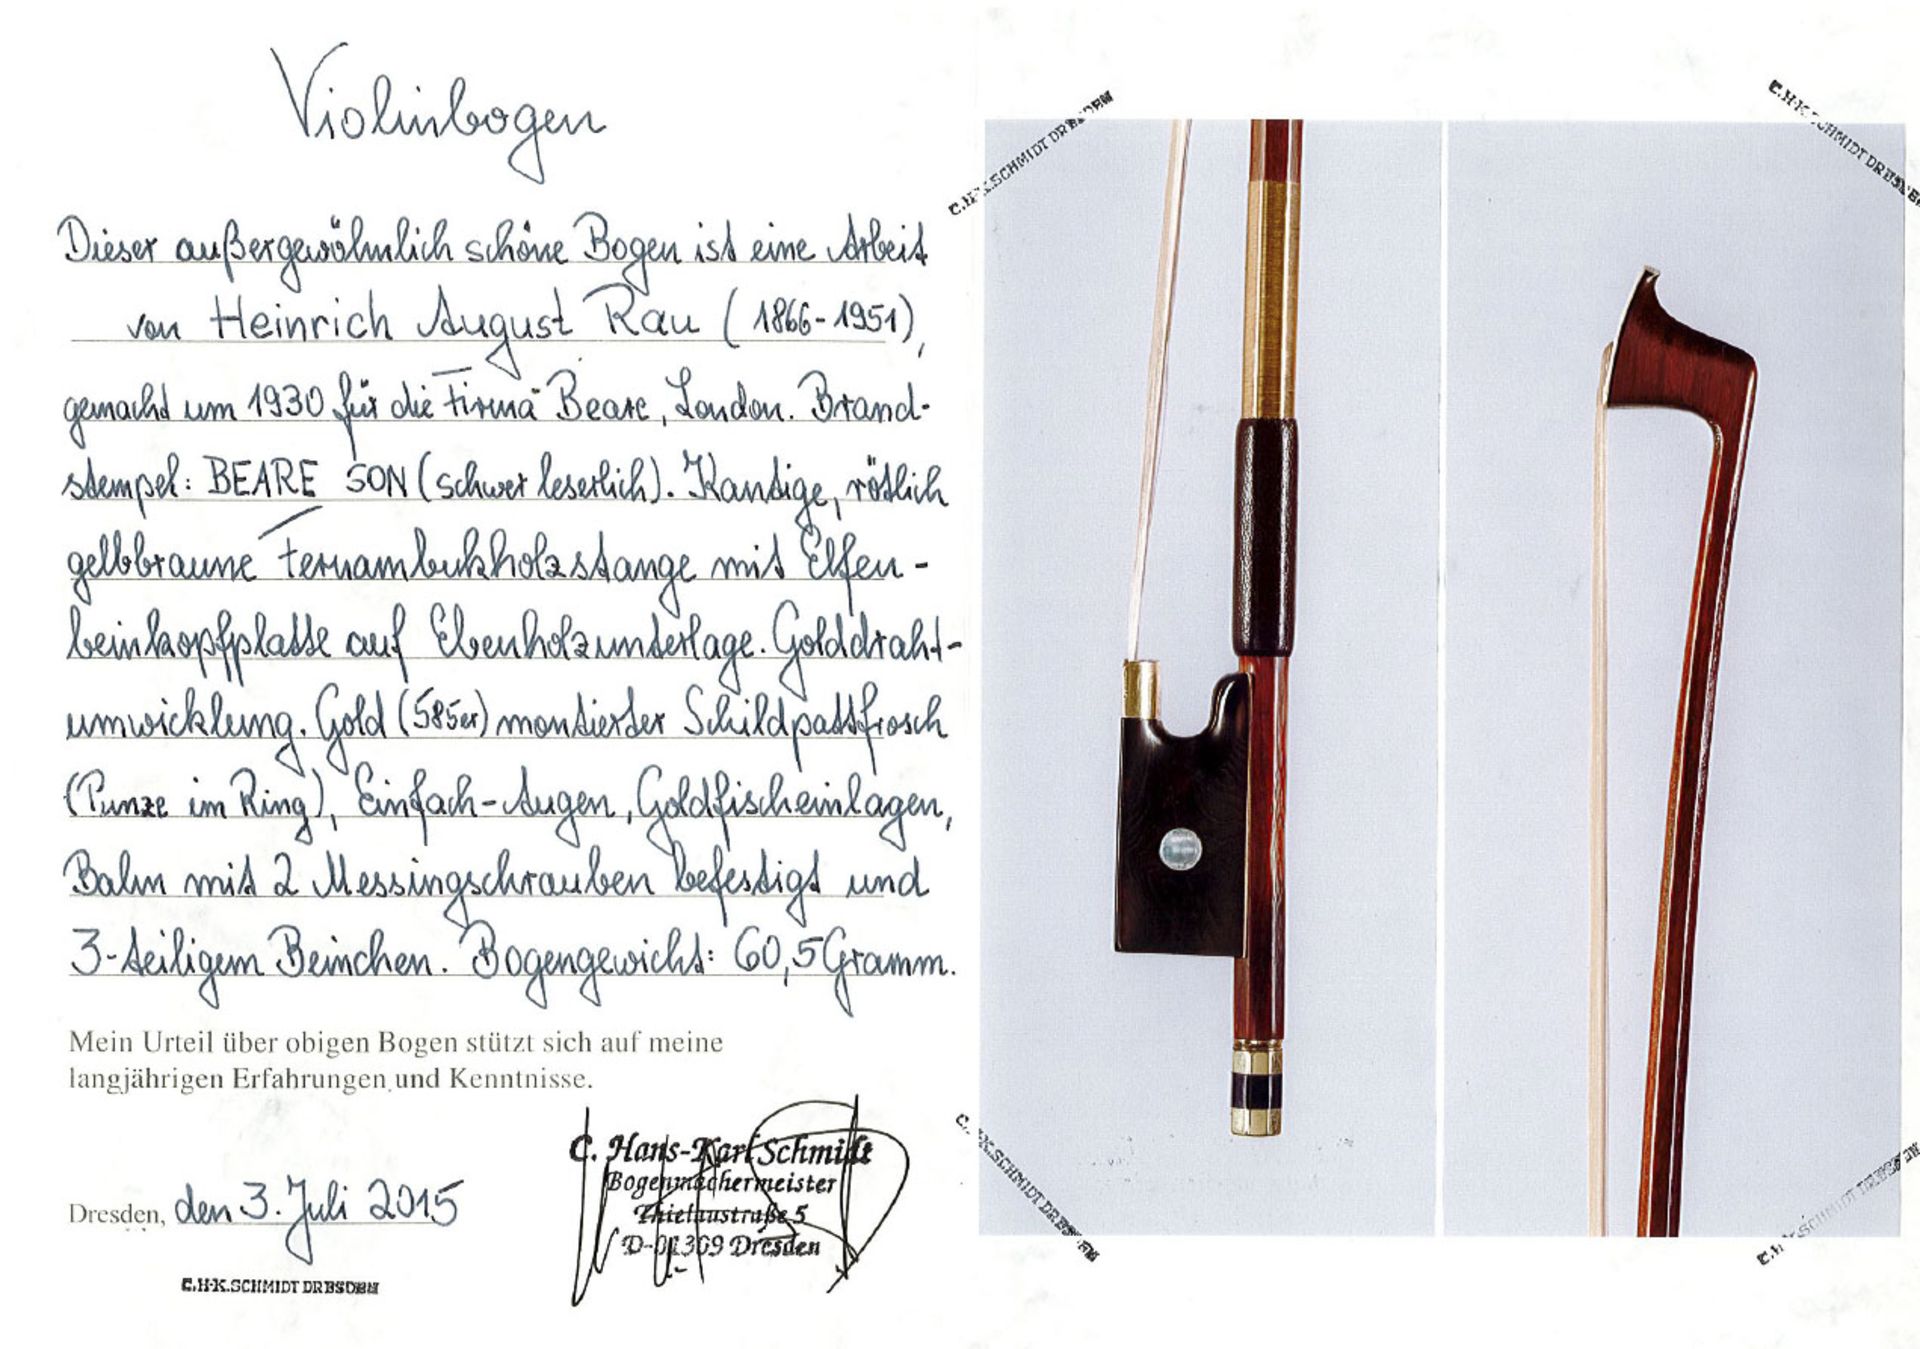 Violinbogen
Dieser außergewöhnlich schöne Bogen ist eine Arbeit
von Heinrich August Rau (1866-1951),
gemacht um 1930 für die Firma Beare, London. Brand-
stempel: BEARE SON (schwer leserlich). Kantige, rötlich
gelbbraune Fernambukholzstange mit Elfen-
beinkopfplatte auf Ebenholzunterlage. Golddraht-
umwicklung. Gold (585er) montierter Schildpattfrosch
(Punze im Ring), Einfach-Augen, Goldfischeinlagen,
Bahn mit 2 Messingschrauben befestigt und
3-teiligem Beinchen. Bogengewicht: 60,5 Gramm.
Mein Urteil über obigen Bogen stützt sich auf meine
langjährigen Erfahrungen und Kenntnisse.
C. Hans-Karl Schmidt
Bogenmachermeister
Thielaustraße 5
D-01309 Dresden
Dresden, den 3. Juli 2015
C.H-K.SCHMIDT DRESDEN
C.H-K.SCHMIDT DRESDEN
C.H-K.SCHMIDT DRESDEN
C.H-K.SCHMIDT DRESDEN
C.H-K.SCHMIDT DRESDEN